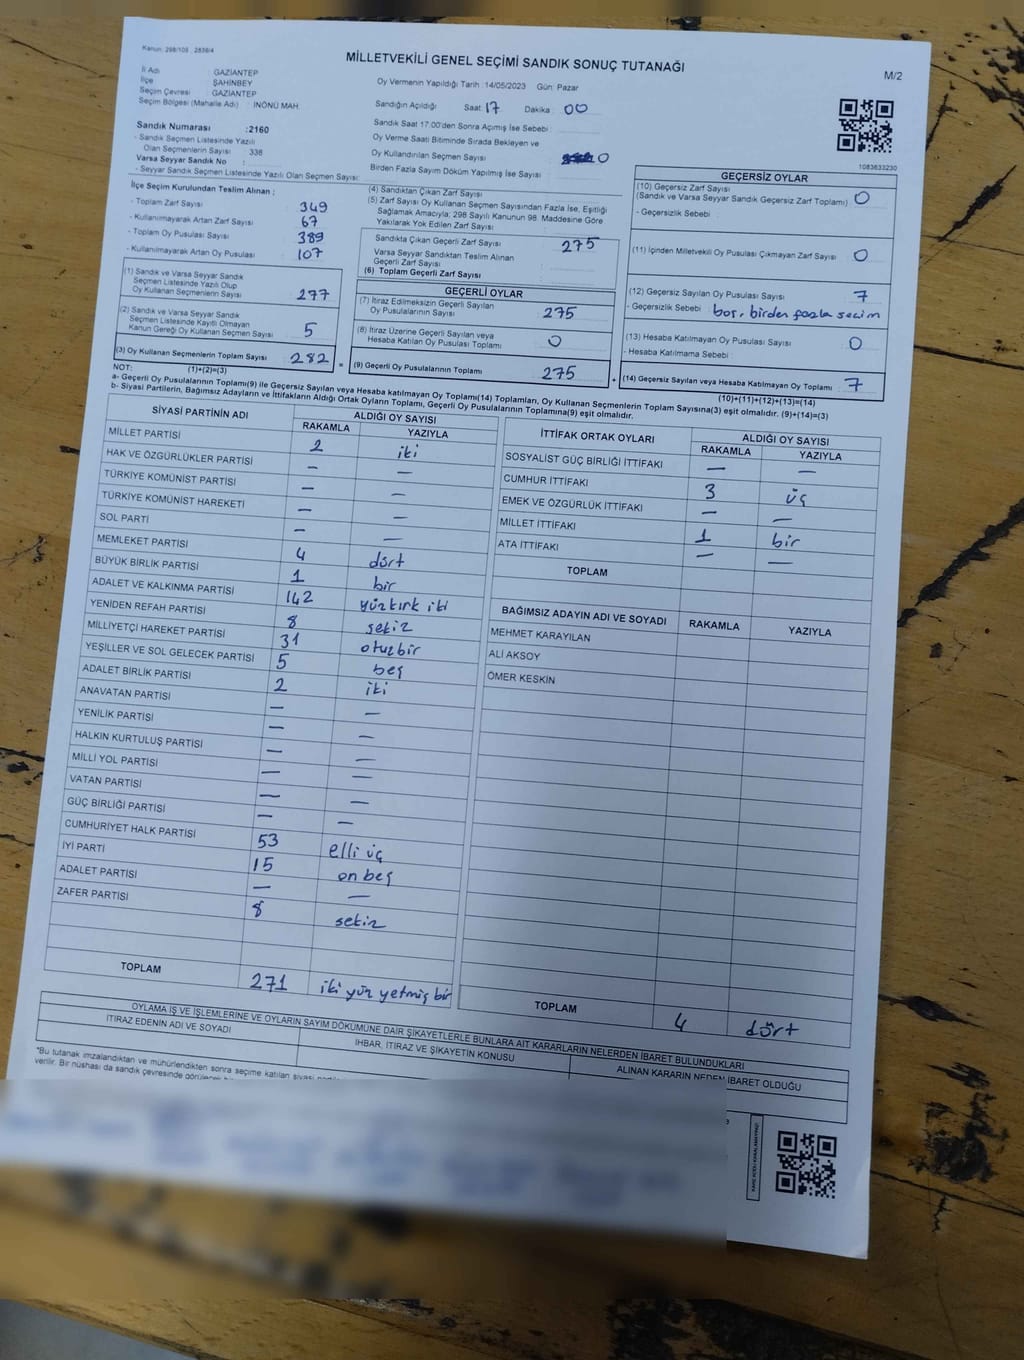 Kanun: 298/105 , 2839/4
MİLLETVEKİLİ GENEL SEÇİMİ SANDIK SONUÇ TUTANAĞI
M/2
İl Adı : GAZİANTEP
İlçe : ŞAHİNBEY
Seçim Çevresi : GAZİANTEP
Seçim Bölgesi (Mahalle Adı) : İNÖNÜ MAH
Oy Vermenin Yapıldığı Tarih :14/05/2023 Gün: Pazar
Sandığın Açıldığı Saat: 17 Dakika : 00
Sandık Saat 17:00'den Sonra Açılmış İse Sebebi :
Oy Verme Saati Bitiminde Sırada Bekleyen ve
Oy Kullandırılan Seçmen Sayısı : 0
Birden Fazla Sayım Döküm Yapılmış İse Sayısı :
Sandık Numarası :2160
- Sandık Seçmen Listesinde Yazılı
Olan Seçmenlerin Sayısı : 338
Varsa Seyyar Sandık No :
- Seyyar Sandık Seçmen Listesinde Yazılı Olan Seçmen Sayısı:
1083633230
İlçe Seçim Kurulundan Teslim Alınan ;
- Toplam Zarf Sayısı : 349
- Kullanılmayarak Artan Zarf Sayısı : 67
- Toplam Oy Pusulası Sayısı : 389
- Kullanılmayarak Artan Oy Pusulası : 107
(1) Sandık ve Varsa Seyyar Sandık
Seçmen Listesinde Yazılı Olup
Oy Kullanan Seçmenlerin Sayısı : 277
(2) Sandık ve Varsa Seyyar Sandık
Seçmen Listesinde Kayıtlı Olmayan
Kanun Gereği Oy Kullanan Seçmen Sayısı : 5
(3) Oy Kullanan Seçmenlerin Toplam Sayısı : 282
(4) Sandıktan Çıkan Zarf Sayısı
(5) Zarf Sayısı Oy Kullanan Seçmen Sayısından Fazla İse, Eşitliği
Sağlamak Amacıyla; 298 Sayılı Kanunun 98. Maddesine Göre
Yakılarak Yok Edilen Zarf Sayısı :
Sandıkta Çıkan Geçerli Zarf Sayısı : 275
Varsa Seyyar Sandıktan Teslim Alınan
Geçerli Zarf Sayısı :
(6) Toplam Geçerli Zarf Sayısı :
GEÇERLİ OYLAR
(7) İtiraz Edilmeksizin Geçerli Sayılan
Oy Pusulalarının Sayısı : 275
(8) İtiraz Üzerine Geçerli Sayılan veya
Hesaba Katılan Oy Pusulası Toplamı : 0
= (9) Geçerli Oy Pusulalarının Toplamı : 275
GEÇERSİZ OYLAR
(10) Geçersiz Zarf Sayısı
(Sandık ve Varsa Seyyar Sandık Geçersiz Zarf Toplamı) : 0
- Geçersizlik Sebebi :
(11) İçinden Milletvekili Oy Pusulası Çıkmayan Zarf Sayısı : 0
(12) Geçersiz Sayılan Oy Pusulası Sayısı : 7
- Geçersizlik Sebebi : boş, birden fazla seçim
(13) Hesaba Katılmayan Oy Pusulası Sayısı : 0
- Hesaba Katılmama Sebebi :
+ (14) Geçersiz Sayılan veya Hesaba Katılmayan Oy Toplamı : 7
NOT: (1)+(2)=(3) (10)+(11)+(12)+(13)=(14)
a- Geçerli Oy Pusulalarının Toplamı(9) ile Geçersiz Sayılan veya Hesaba katılmayan Oy Toplamı(14) Toplamları, Oy Kullanan Seçmenlerin Toplam Sayısına(3) eşit olmalıdır. (9)+(14)=(3)
b- Siyasi Partilerin, Bağımsız Adayların ve İttifakların Aldığı Ortak Oyların Toplamı, Geçerli Oy Pusulalarının Toplamına(9) eşit olmalıdır.
SİYASİ PARTİNİN ADI ALDIĞI OY SAYISI
RAKAMLA YAZIYLA
MİLLET PARTİSİ 2 iki
HAK VE ÖZGÜRLÜKLER PARTİSİ — —
TÜRKİYE KOMÜNİST PARTİSİ — —
TÜRKİYE KOMÜNİST HAREKETİ — —
SOL PARTİ — —
MEMLEKET PARTİSİ 4 dört
BÜYÜK BİRLİK PARTİSİ 1 bir
ADALET VE KALKINMA PARTİSİ 142 yüzkırk iki
YENİDEN REFAH PARTİSİ 8 sekiz
MİLLİYETÇİ HAREKET PARTİSİ 31 otuzbir
YEŞİLLER VE SOL GELECEK PARTİSİ 5 beş
ADALET BİRLİK PARTİSİ 2 iki
ANAVATAN PARTİSİ — —
YENİLİK PARTİSİ — —
HALKIN KURTULUŞ PARTİSİ — —
MİLLİ YOL PARTİSİ — —
VATAN PARTİSİ — —
GÜÇ BİRLİĞİ PARTİSİ — —
CUMHURİYET HALK PARTİSİ 53 elli üç
İYİ PARTİ 15 on beş
ADALET PARTİSİ — —
ZAFER PARTİSİ 8 sekiz
TOPLAM 271 iki yüz yetmiş bir
İTTİFAK ORTAK OYLARI ALDIĞI OY SAYISI
RAKAMLA YAZIYLA
SOSYALİST GÜÇ BİRLİĞİ İTTİFAKI — —
CUMHUR İTTİFAKI 3 üç
EMEK VE ÖZGÜRLÜK İTTİFAKI — —
MİLLET İTTİFAKI 1 bir
ATA İTTİFAKI — —
TOPLAM
BAĞIMSIZ ADAYIN ADI VE SOYADI RAKAMLA YAZIYLA
MEHMET KARAYILAN
ALİ AKSOY
ÖMER KESKİN
TOPLAM 4 dört
OYLAMA İŞ VE İŞLEMLERİNE VE OYLARIN SAYIM DÖKÜMÜNE DAİR ŞİKAYETLERLE BUNLARA AİT KARARLARIN NELERDEN İBARET BULUNDUKLARI
İTİRAZ EDENİN ADI VE SOYADI İHBAR, İTİRAZ VE ŞİKAYETİN KONUSU ALINAN KARARIN NEDEN İBARET OLDUĞU
"Bu tutanak imzalandıktan ve mühürlendikten sonra seçime katılan siyasi
verilir. Bir nüshası da sandık çevresinde